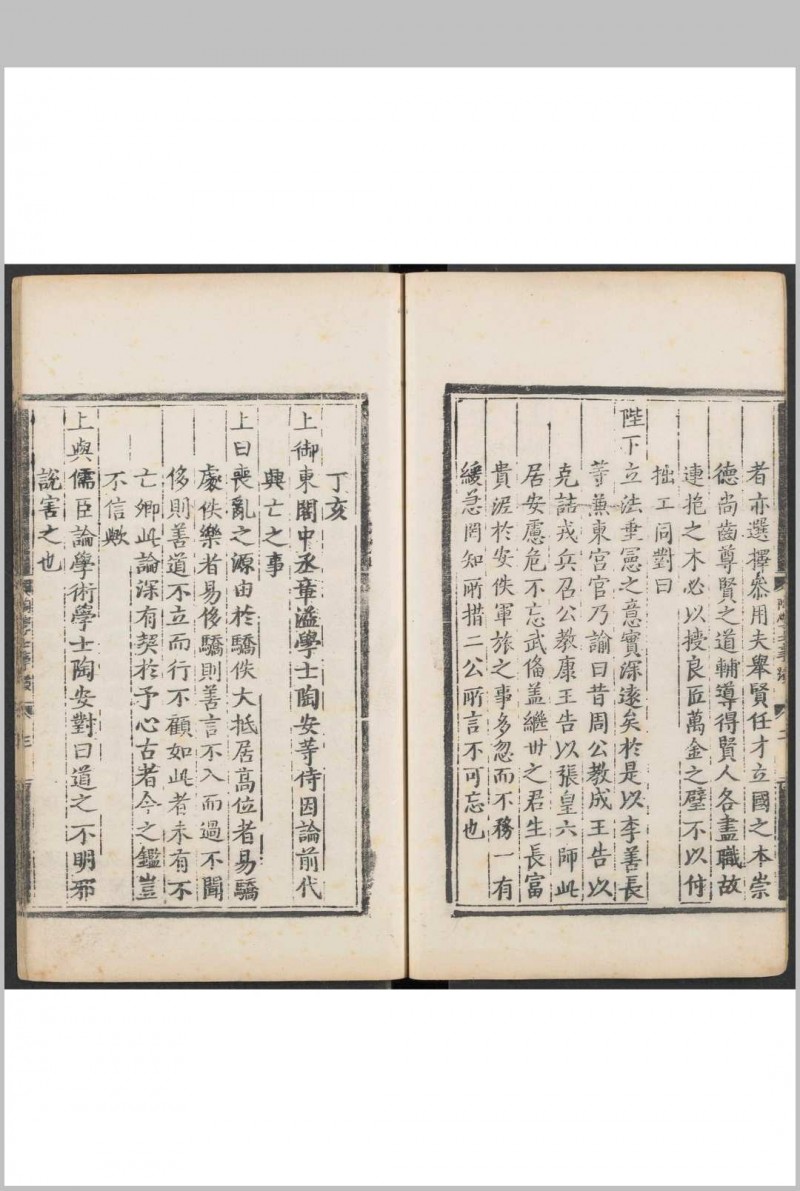 者亦選擇叅用夫舉賢任才立國之本崇
德尚齒尊賢之道輔導得賢人各盡職故
連抱之木必以授良匠萬金之璧不以付
拙工同對曰
陛下立法垂憲之意實深遠矣於是以李善長
等兼東宮官乃諭曰昔周公教成王告以
克詰戎兵召公教康王告以張皇六師此
居安慮危不忘武俻盖繼丗之君生長富
貴涊於安佚軍旅之事多忽而不務一有
緩急罔知所措二公所言不可忘也
丁亥
上御東閣中丞章溢學士陶安等侍因論前代
興亡之事
上曰喪亂之源由於驕佚大抵居高位者易驕
處佚樂者易侈驕則善言不入而過不聞
侈則善道不立而行不顧如此者未有不
亡卿此論深有契於予心古者今之鑑豈
不信歟
上與儒臣論學術學士陶安對曰道之不明邪
說害之也